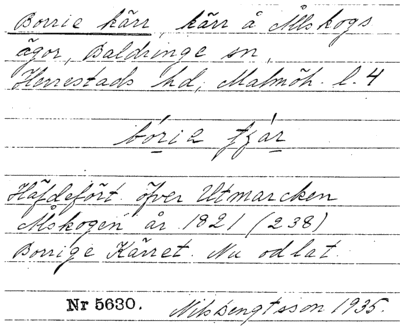 Borrie kärr, kärr å Ålskogs
ägor, Baldringe sn,
Herrestads hd, Malmöh. l. 4
bórie tjár
Häfdefört öfver Utmarcken
Alskogen år 1821 (238)
Borrige Kärret. Nu odlat.
Nr 5630. Nils Bengtsson 1935.